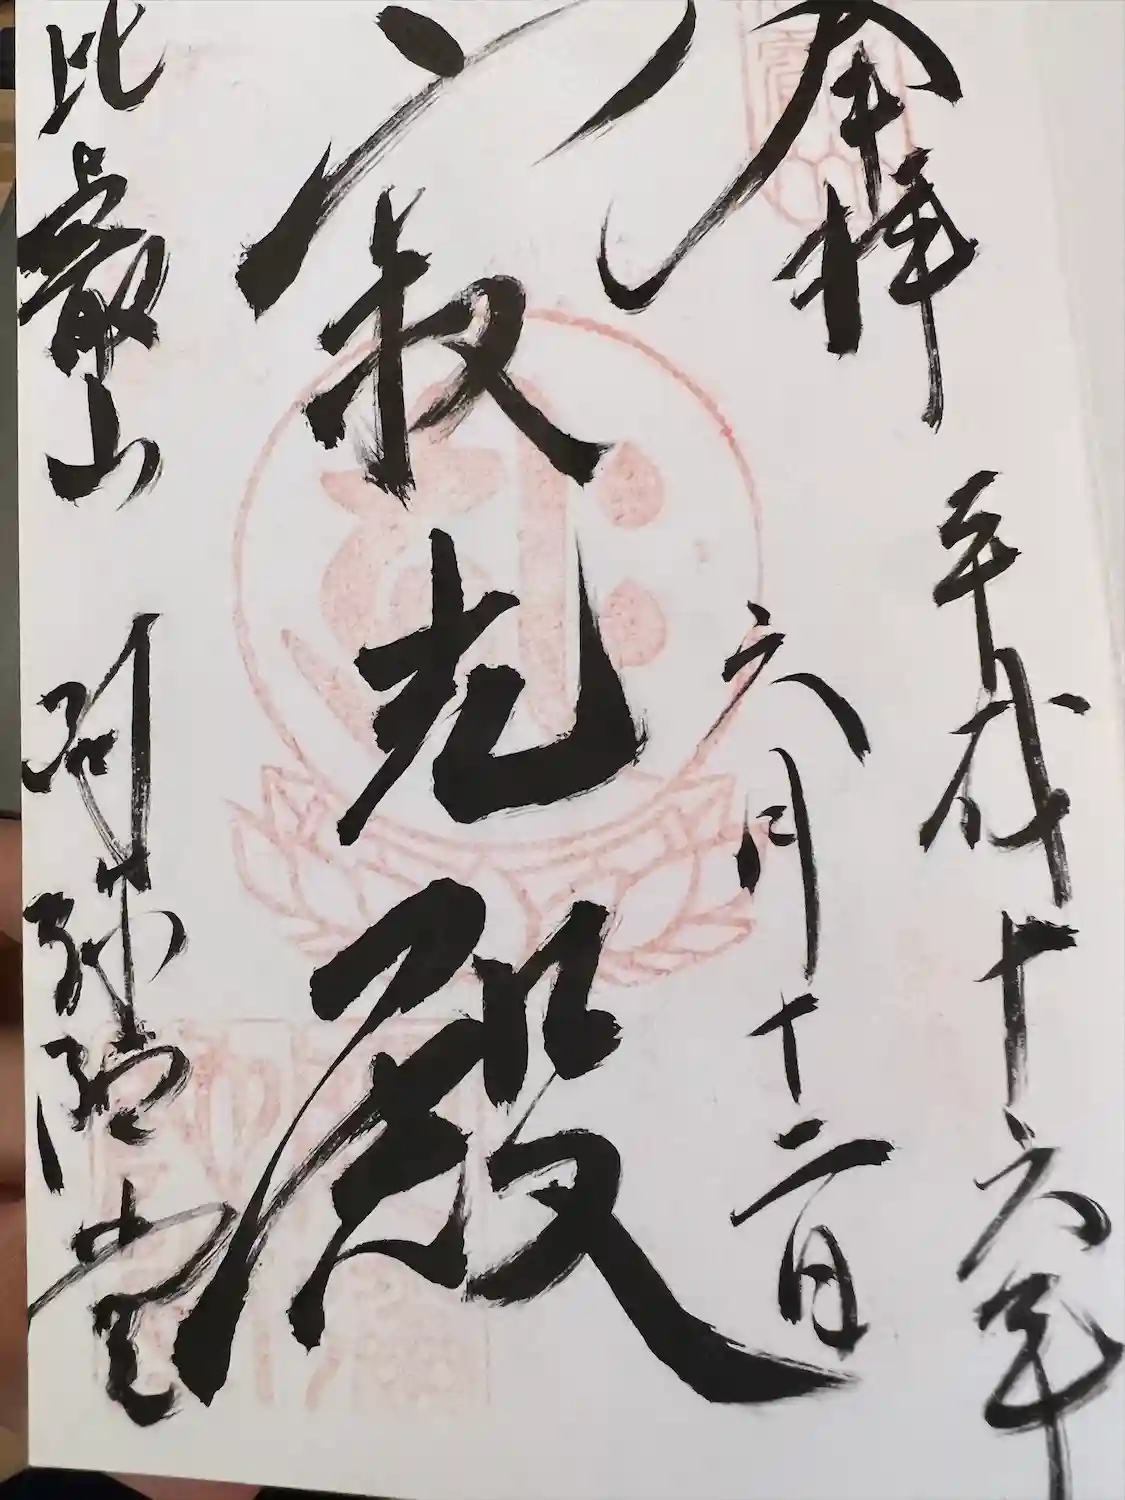 奉拝
平成十六年
六月十二日
寂光殿
比叡山
阿弥陀堂